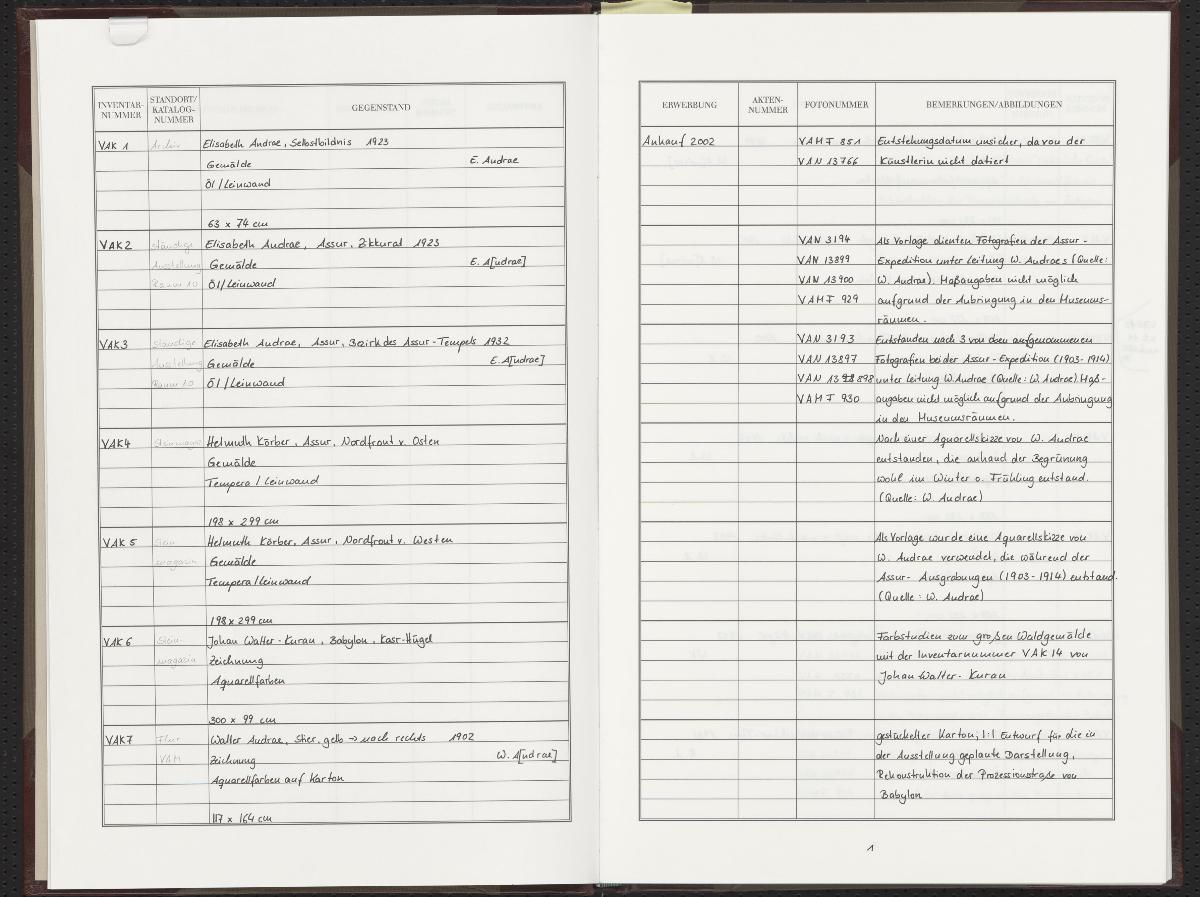 INVENTAR-NUMMER STANDORT/KATALOG-NUMMER GEGENSTAND
VAK 1 Archiv Elisabeth Andrae, Selbstbildnis 1923
Gemälde E. Andrae
Öl/Leinwand
63 x 74 cm
VAK 2 ständige Elisabeth Andrae, Assur, Zikkurat 1923
Ausstellung Gemälde E. A[udrae]
Raum 10 Öl/Leinwand
VAK 3 ständige Elisabeth Andrae, Assur, Bezirk des Assur-Tempels 1932
Ausstellung Gemälde E. A[udrae]
Raum 10 Öl/Leinwand
VAK 4 Steinmagazin Helmuth Körber, Assur, Nordfront v. Osten
Gemälde
Tempera/Leinwand
198 x 299 cm
VAK 5 Stein- Helmuth Körber, Assur, Nordfront v. Westen
magazin Gemälde
Tempera/Leinwand
198 x 299 cm
VAK 6 Stein- Johan Walter-Kurau, Babylon, Kasr-Hügel
magazin Zeichnung
Aquarellfarben
300 x 99 cm
VAK 7 Flur Walter Andrae, Stier, gelb → nach rechts 1902
VAM Zeichnung W. A[ndrae]
Aquarellfarben auf Karton
117 x 164 cm
ERWERBUNG AKTEN-NUMMER FOTONUMMER BEMERKUNGEN/ABBILDUNGEN
Ankauf 2002 VAMF 851 Entstehungsdatum unsicher, da von der
VAN 13766 Künstlerin nicht datiert
VAN 3194 Als Vorlage dienten Fotografien der Assur-
VAN 13899 Expedition unter Leitung W. Andraes (Quelle:
VAN 13900 W. Andrae). Maßangaben nicht möglich
VAMF 929 aufgrund der Anbringung in den Museums-
räumen.
VAN 3193 Entstanden nach 3 von den aufgenommenen
VAN 13897 Fotografien bei der Assur-Expedition (1903-1914)
VAN 13898 unter Leitung W. Andrae (Quelle: W. Andrae). Maß-
VAMF 930 angaben nicht möglich aufgrund der Anbringung
in den Museumsräumen.
Nach einer Aquarellskizze von W. Andrae
entstanden, die anhand der Begrünung
wohl im Winter o. Frühling entstand.
(Quelle: W. Andrae)
Als Vorlage wurde eine Aquarellskizze von
W. Andrae verwendet, die während der
Assur-Ausgrabungen (1903-1914) entstand.
(Quelle: W. Andrae)
Farbstudien zum großen Waldgemälde
mit der Inventarnummer VAK 14 von
Johan Walter-Kurau
gestückelter Karton; 1:1 Entwurf für die in
der Ausstellung geplante Darstellung,
Rekonstruktion der Prozessionstraße von
Babylon
1